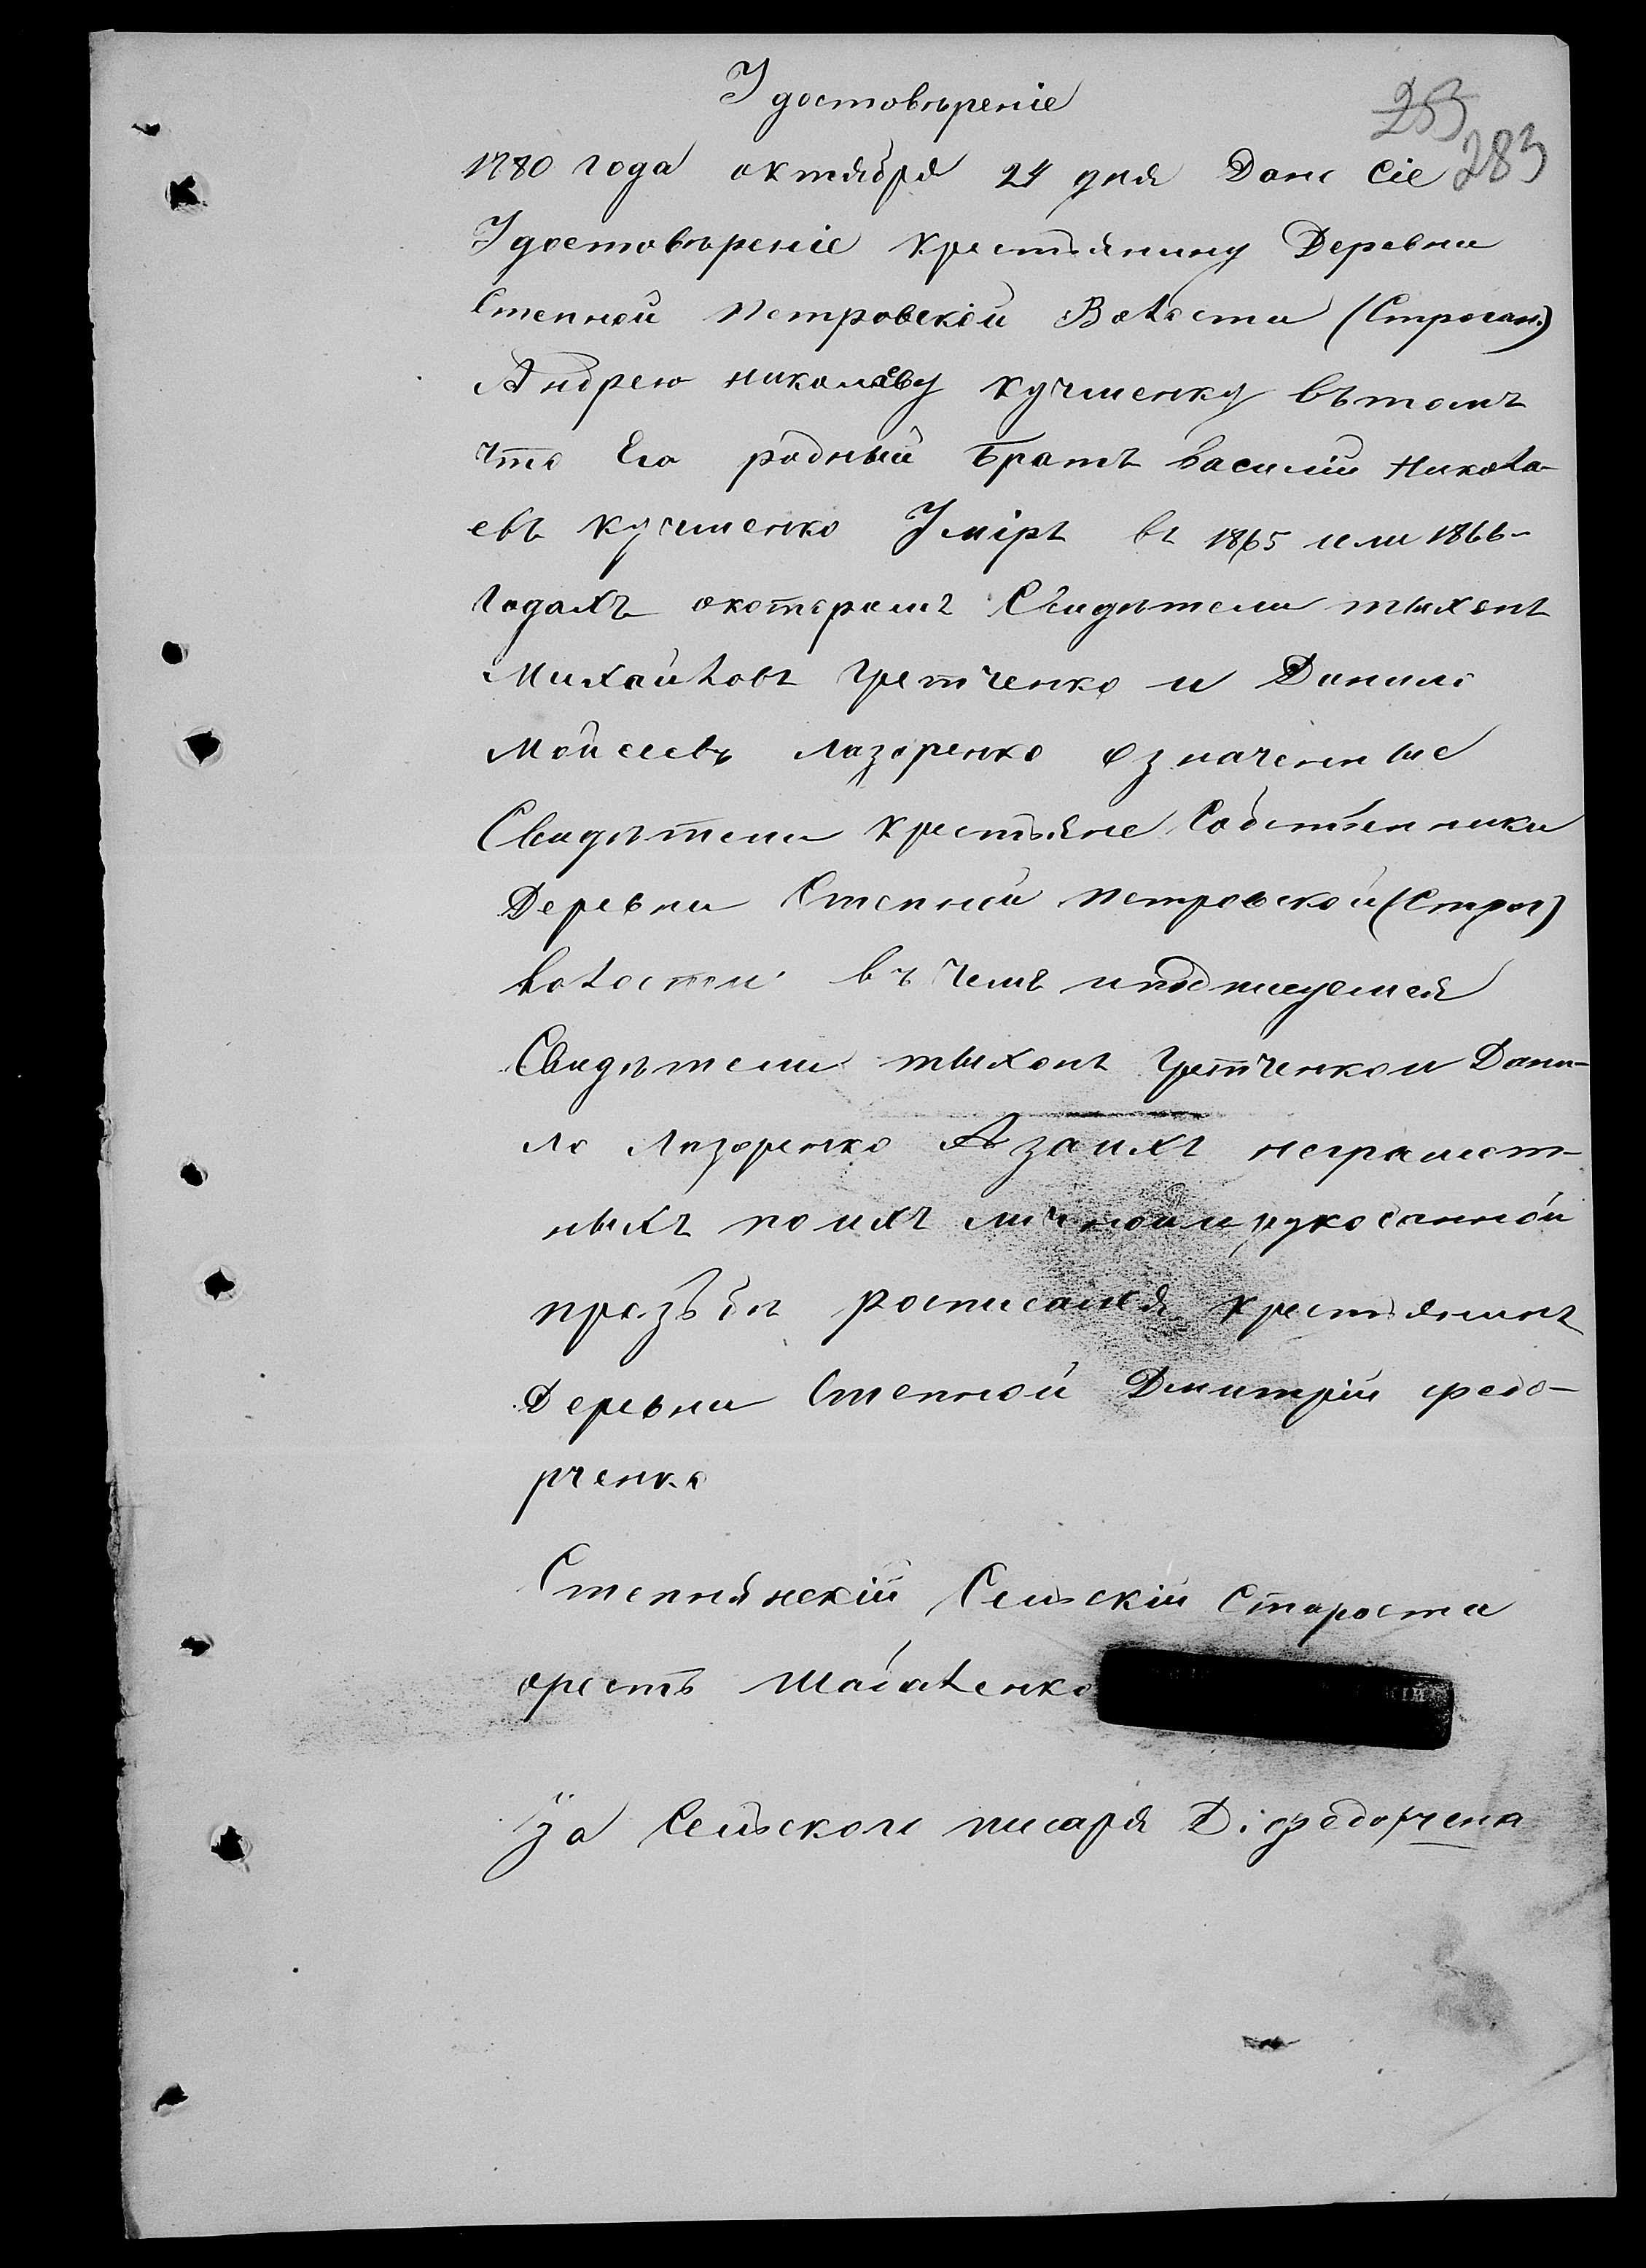 Удостовѣреніе
253
283
1880 года октября 24 дня Дано Сіе
Удостовѣреніе крестьянину Деревни
Степной Петровской Волости (Строган.)
Андрею николаеву кучменку вътомъ
что Его родный Братъ василій Никола-
евъ кучменко Умiръ въ 1865 или 1866-
Годахъ окоторомъ Свидѣтели тыхонъ
Михайловъ Гретченко и Данило
Мойсеевъ лазоренко означенные
Свидѣтели крестьяне Собственники
Деревни Степной петровской (Строг)
волости въ чемъ иподписуемся
Свидѣтели тыхонъ Гретченко и Дани-
ло Лазоренко Азаихъ неграмот-
ныхъ поихъ личной ирукоданной
прозьбѣ росписался крестьянинъ
Деревни Степной Дмитрій федо-
рченко
Степнянскій Сельскій Староста
орестъ Шабаленко
За Сельского писаря Д. федорченко